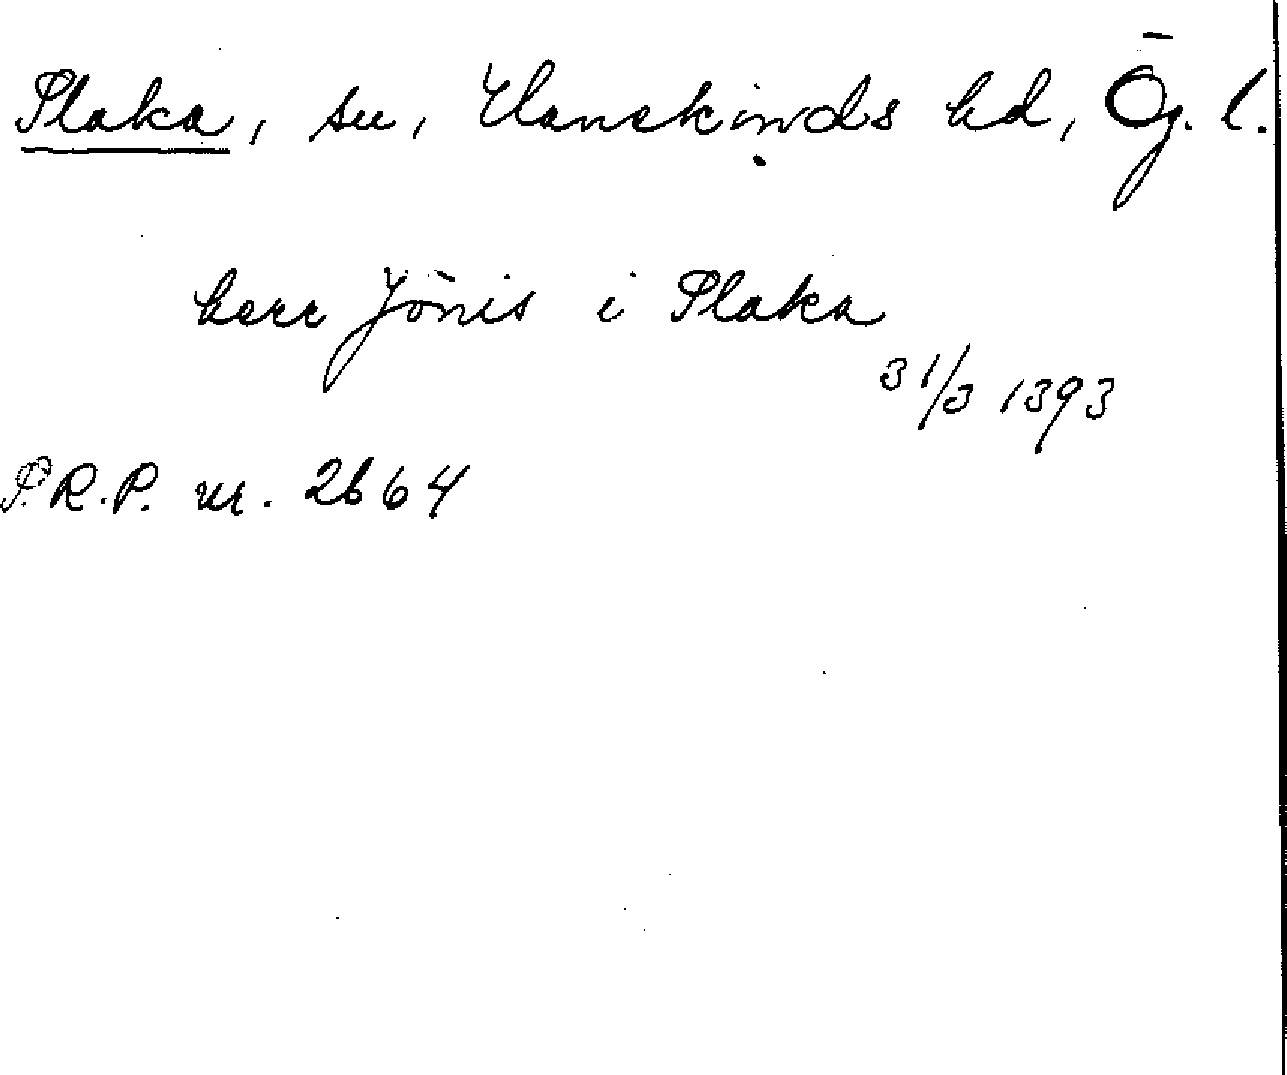 Slaka, sn, Hanekinds hd, Ög. l.
herr Jönis i Slaka
31/3 1393
S.R.P. nr. 2664